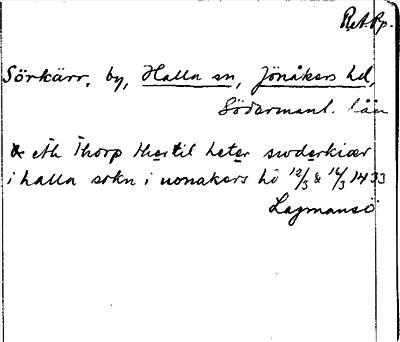 RA. Pp.
Sörkärr, by, Halla sn, Jönåkers hd,
Södermanl. län
& eth Thorp ther til heter swderkiær
i halla sokn i uonakers hd 12/3 & 14/3 1433
Lagmansö